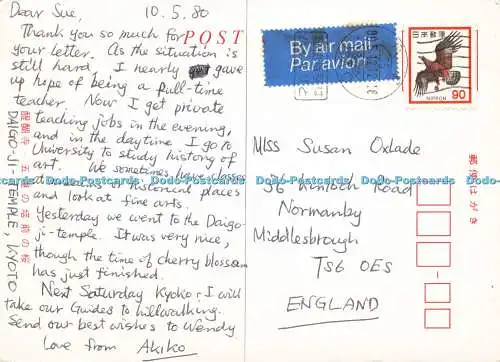 Dear Sue,
10.5.80
Thank you so much for
your letter. As the situation is
still hard, I nearly gave
up hope of being a full-time
teacher. Now I get private
teaching jobs in the evening,
and in the daytime I go to
University to study history of
art. We sometimes have classes
at temples historical places
and look at fine arts.
Yesterday we went to the Daigo-
ji-temple. It was very nice,
though the time of cherry blossom
has just finished.
Next Saturday Kyoko + I will
take our Guides to hillwalking.
Send our best wishes to Wendy
Love from Akiko
POST
醍醐寺
DAIGO-JI-TEMPLE, KYOTO
By air mail
Par avion
日本郵便
NIPPON
90
Miss Susan Oxlade
36 Kinloch Road
Normanby
Middlesbrough
TS6 0ES
ENGLAND
郵便はがき
Dodo-Postcards Dodo-Postcards Dodo-Postcards Dodo-Postcards Dodo-Postcards